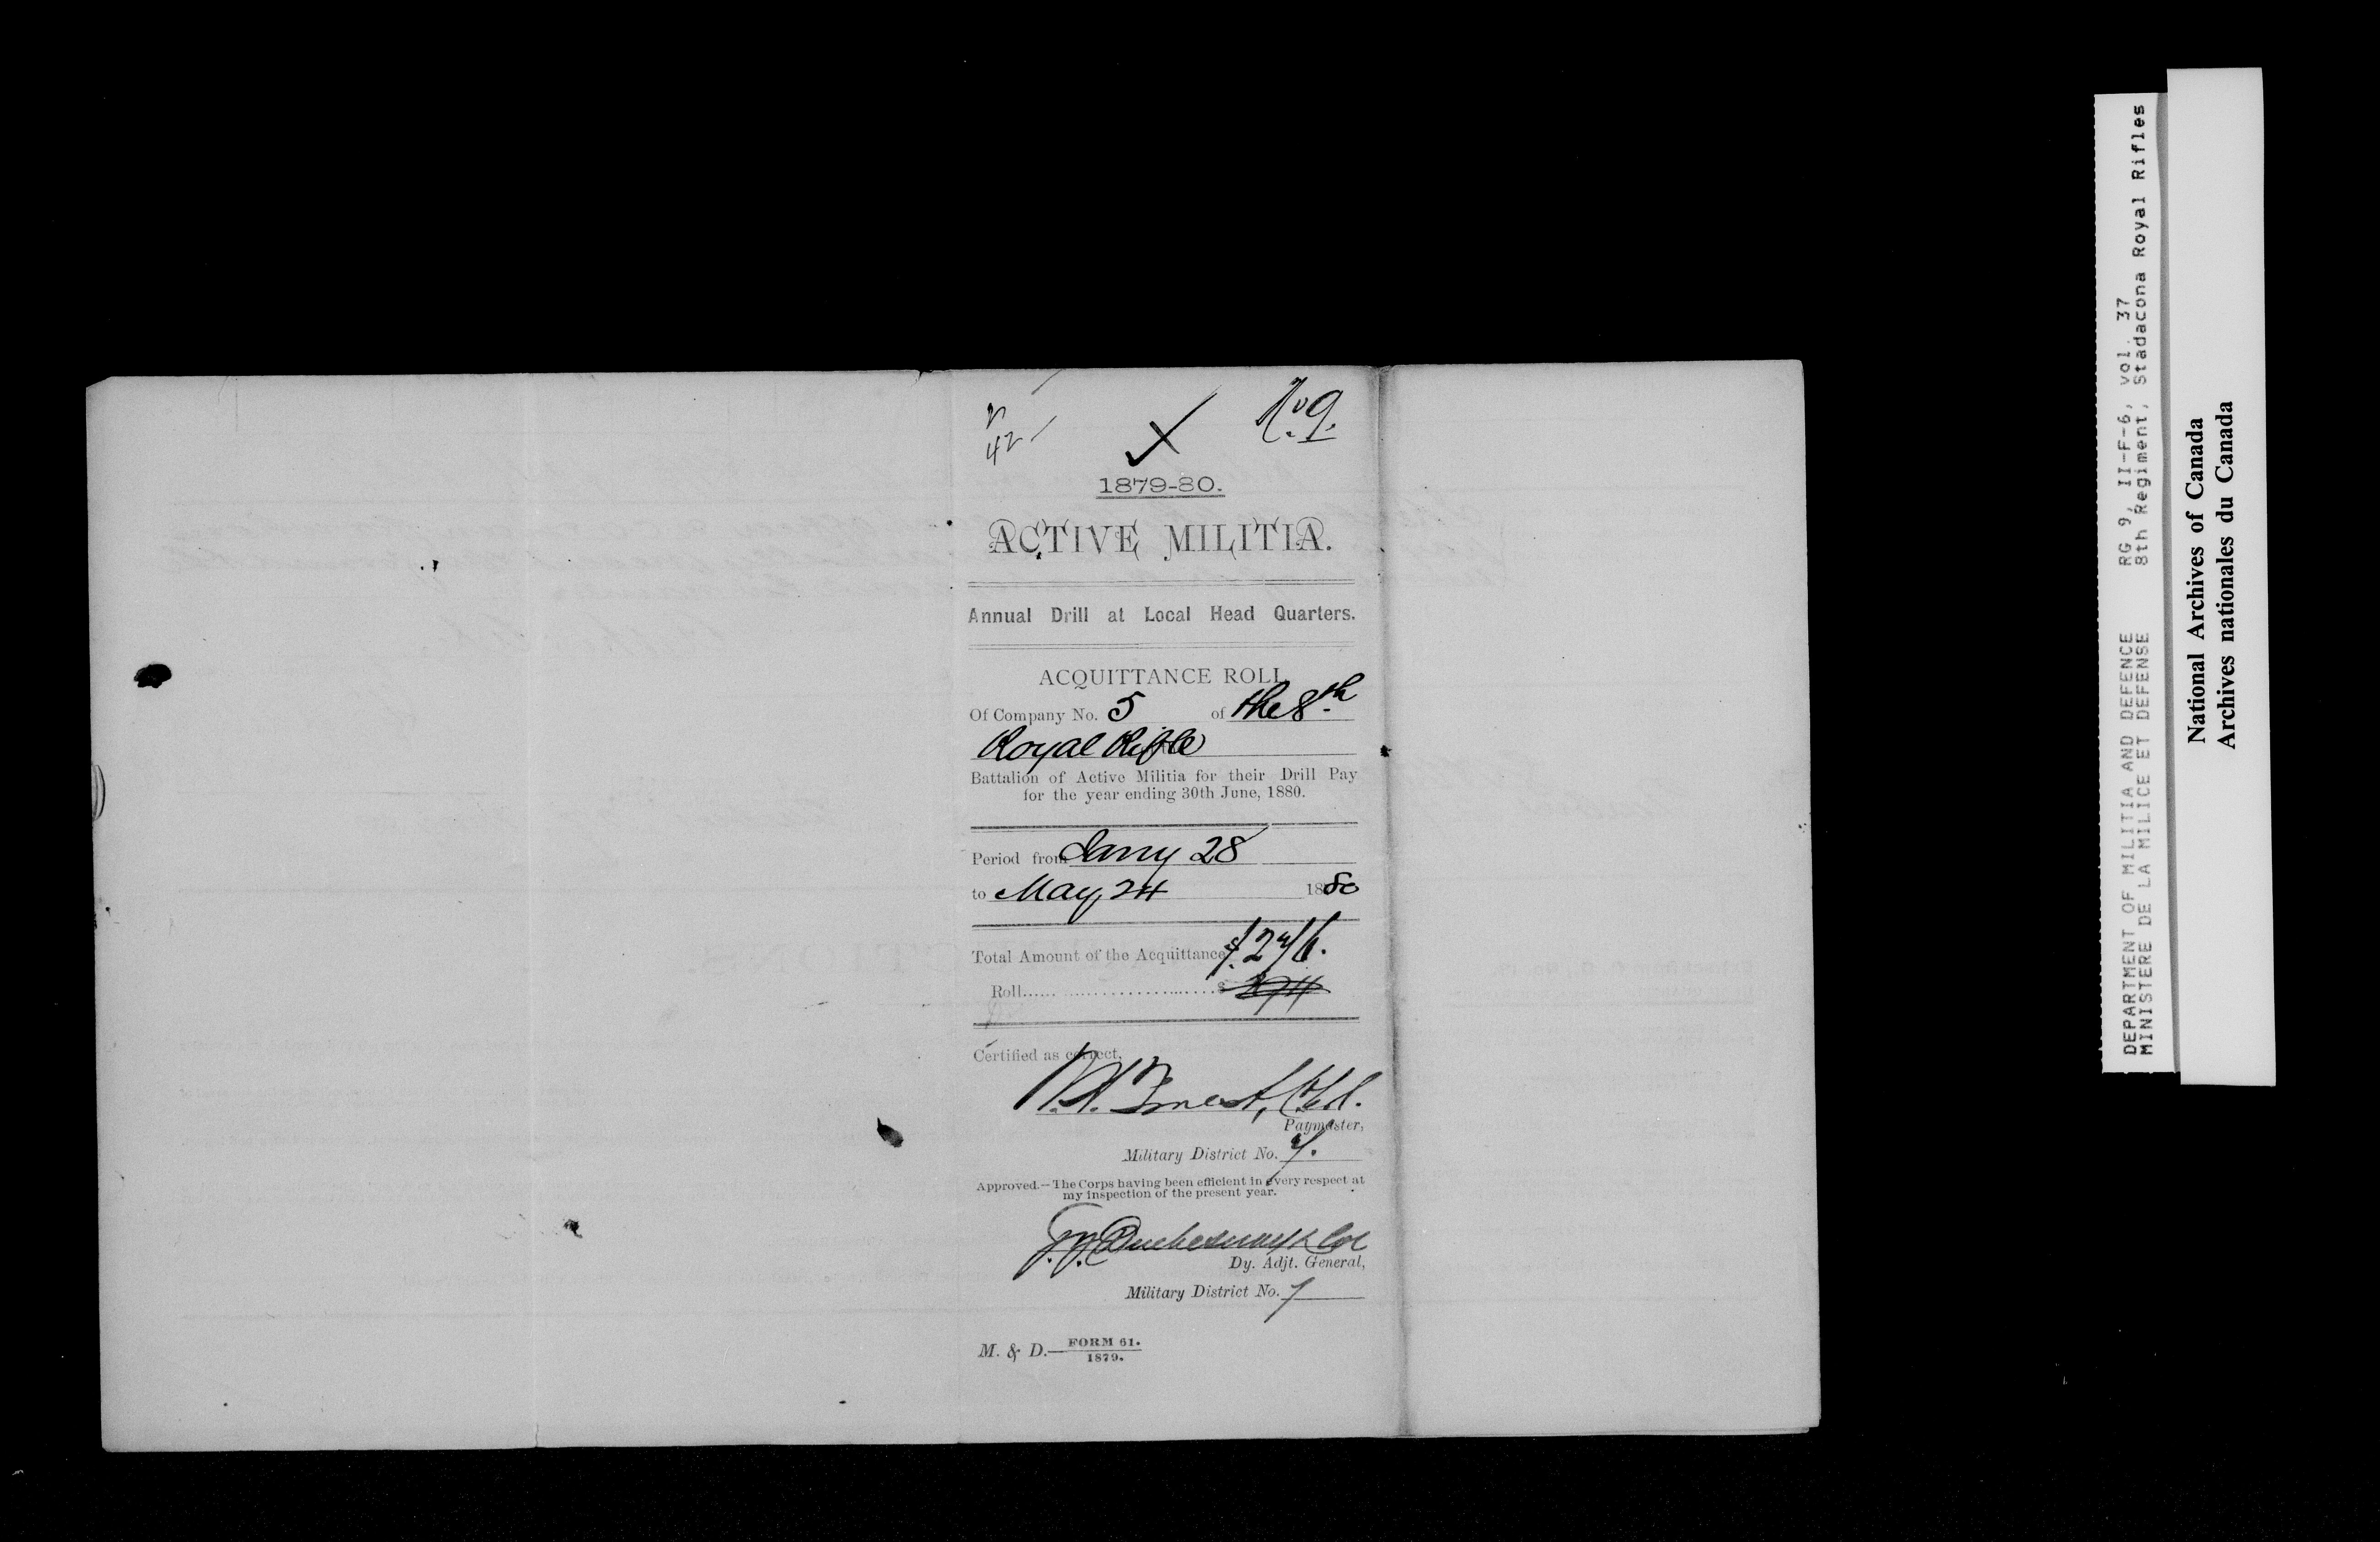 No 9.
42
1879-80.
ACTIVE MILITIA.
Annual Drill at Local Head Quarters.
ACQUITTANCE ROLL
Of Company No. 5 of the 8th
Royal Rifle
Battalion of Active Militia for their Drill Pay
for the year ending 30th June, 1880.
Period from Jany 28
to May, 24 1880
Total Amount of the Acquittance $276.
Roll
Certified as correct,
Paymaster,
Military District No. 7.
Approved.—The Corps having been efficient in every respect at
my inspection of the present year.
Duchesnay Lt Col
Dy. Adjt. General,
Military District No. 7
M. & D.—FORM 61.
1879.
DEPARTMENT OF MILITIA AND DEFENCE RG 9, II-F-6, vol. 37
MINISTERE DE LA MILICE ET DEFENSE 8th Regiment, Stadacona Royal Rifles
National Archives of Canada
Archives nationales du Canada